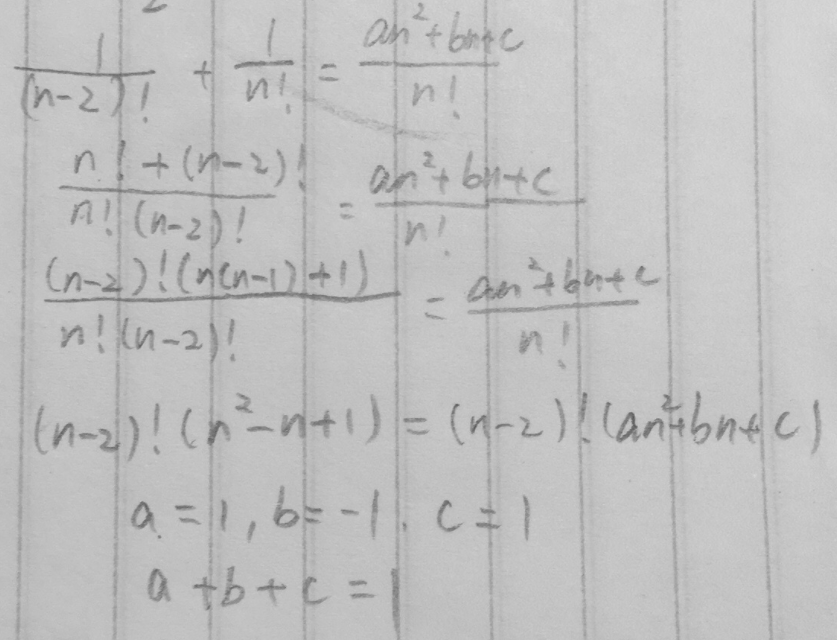 1/(n-2)! + 1/n! = (an²+bn+c)/n!
(n!+(n-2)!)/(n!(n-2)!) = (an²+bn+c)/n!
((n-2)!(n(n-1)+1))/(n!(n-2)!) = (an²+bn+c)/n!
(n-2)!(n²-n+1) = (n-2)!(an²+bn+c)
a=1, b=-1. c=1
a+b+c=1